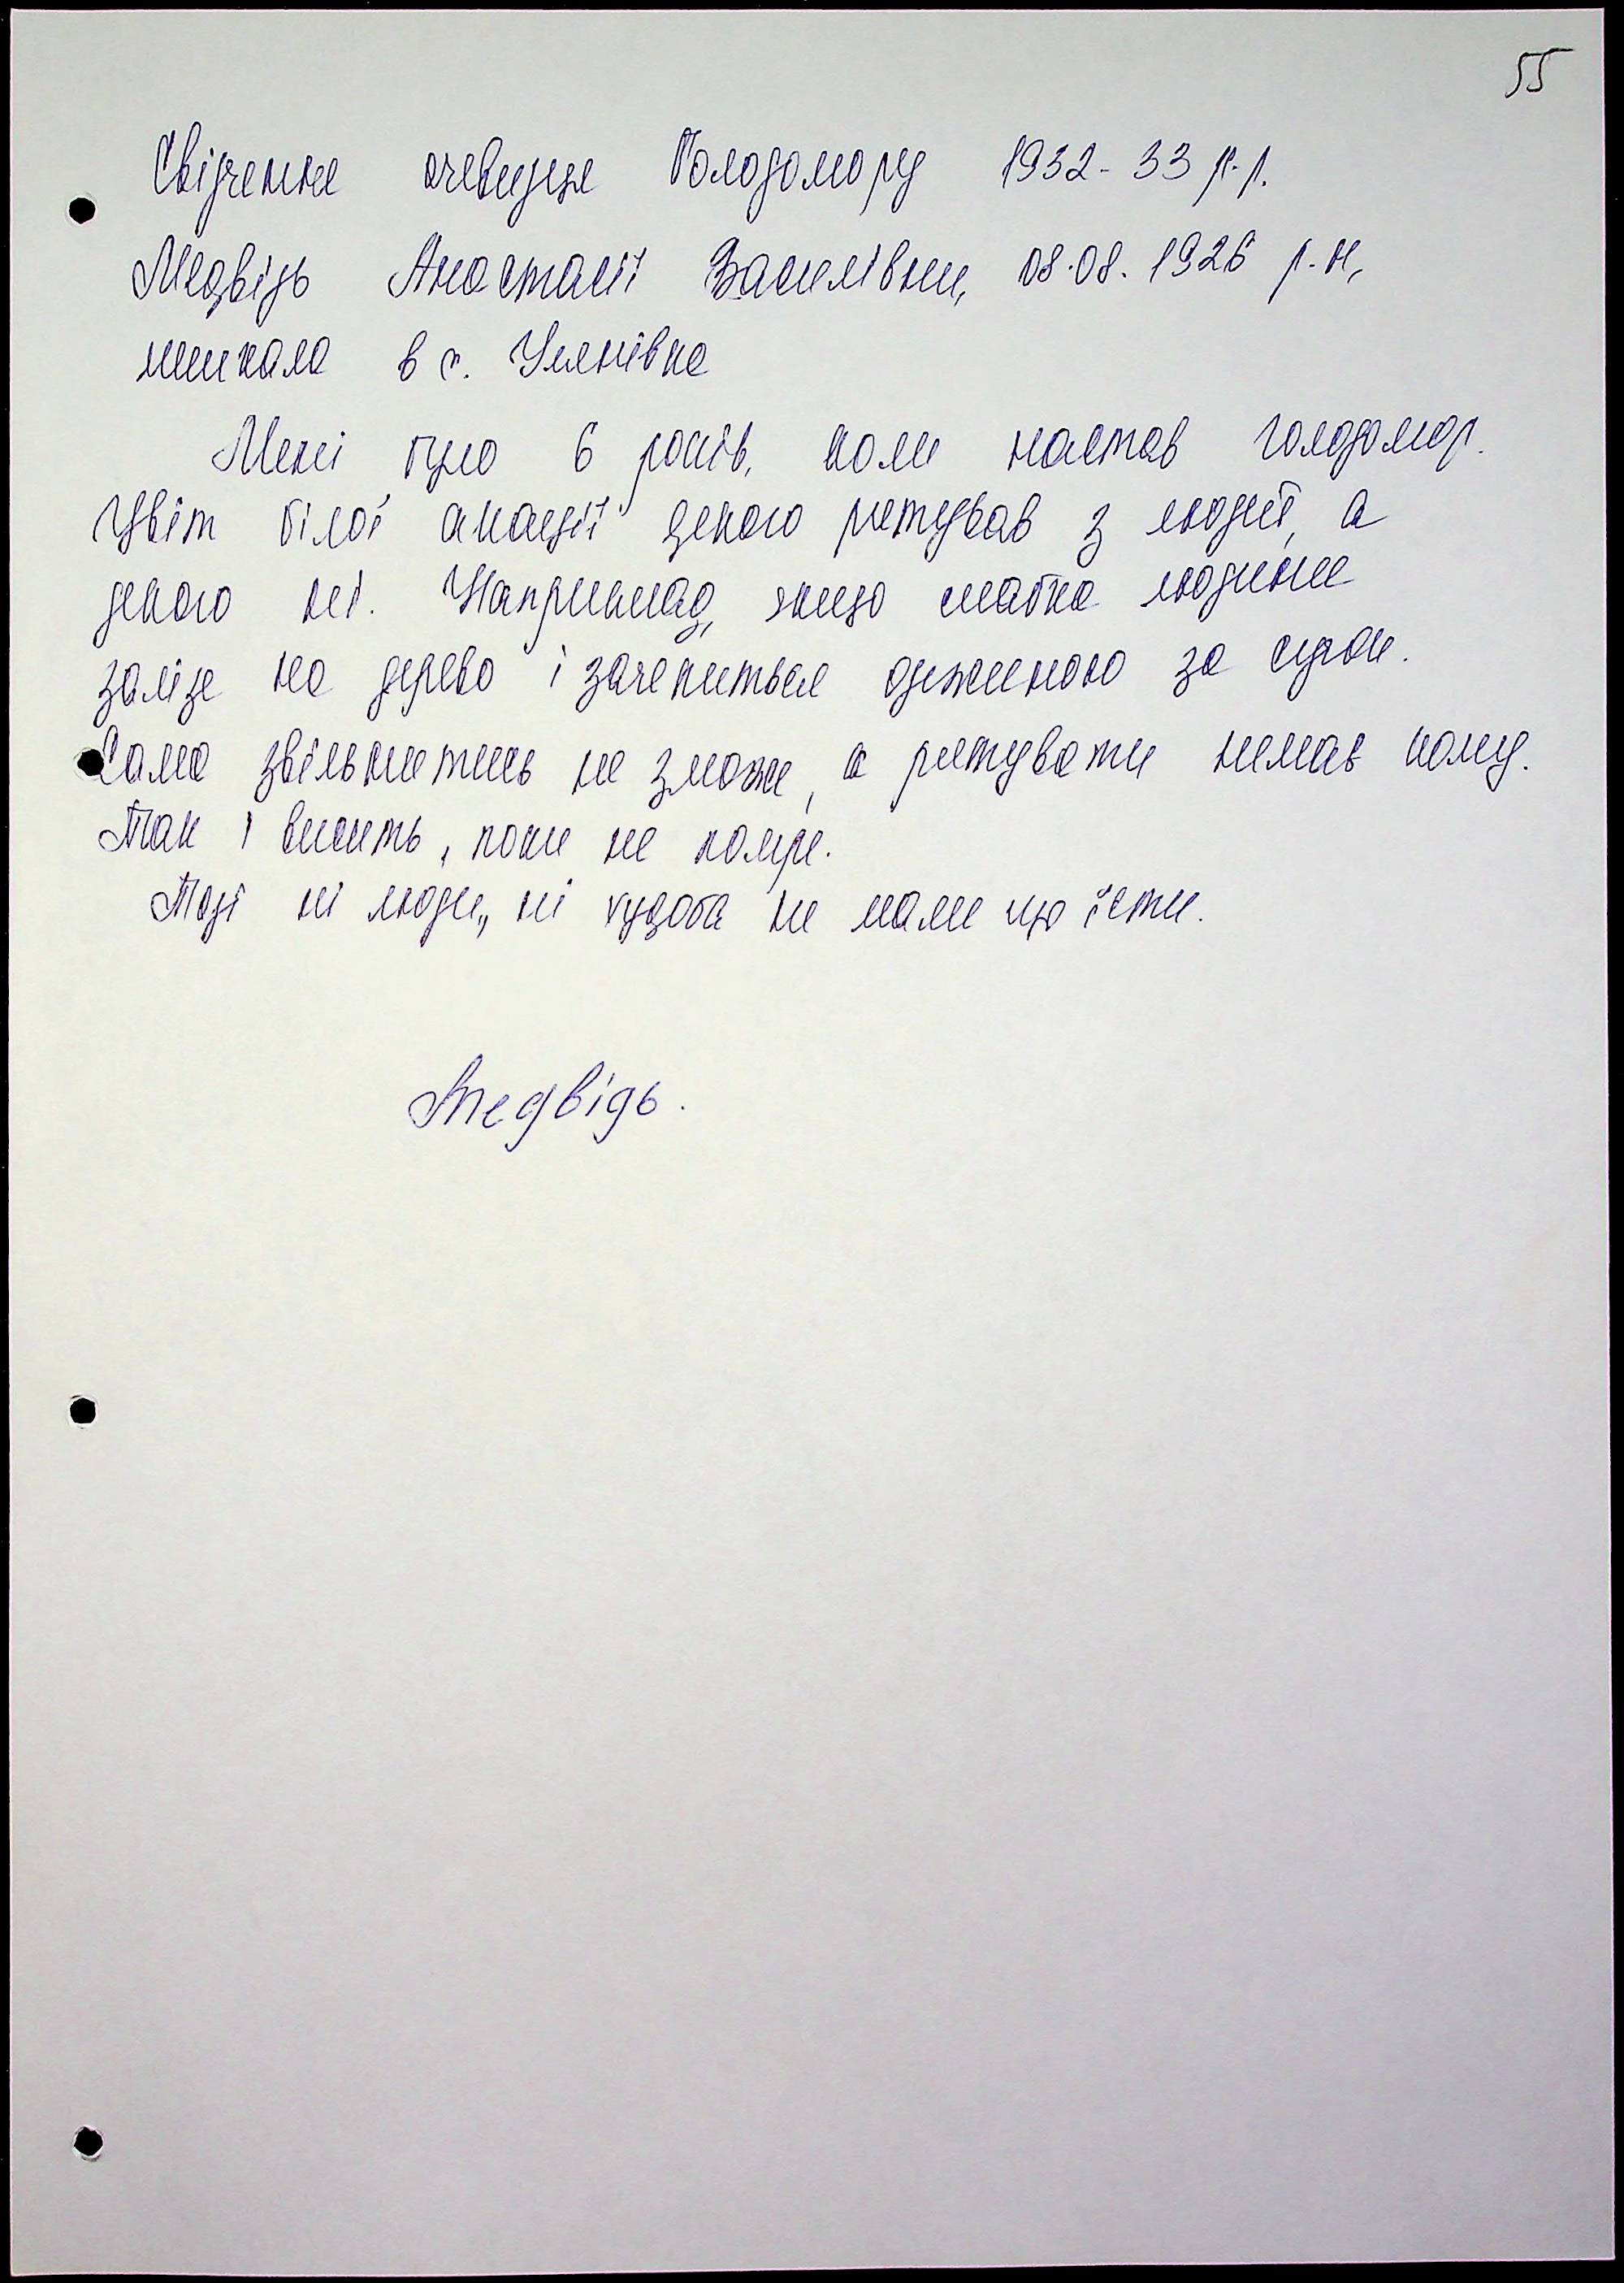 55
Свідчення очевидця Голодомору 1932-33 р.р.
Медвідь Анастасії Василівни, 08.08.1926 р.н,
мешкала в с. Улянівка
Мені було 6 років, коли настав голодомор.
Цвіт білої акації декого рятував з людей, а
декого ні. Наприклад, якщо слабка людина
залізе на дерево і зачепиться одежиною за сучок.
Сама звільнитись не зможе, а рятувати немає кому.
Так і висить, поки не помре.
Тоді ні люди, ні худоба не мали що їсти.
Медвідь.